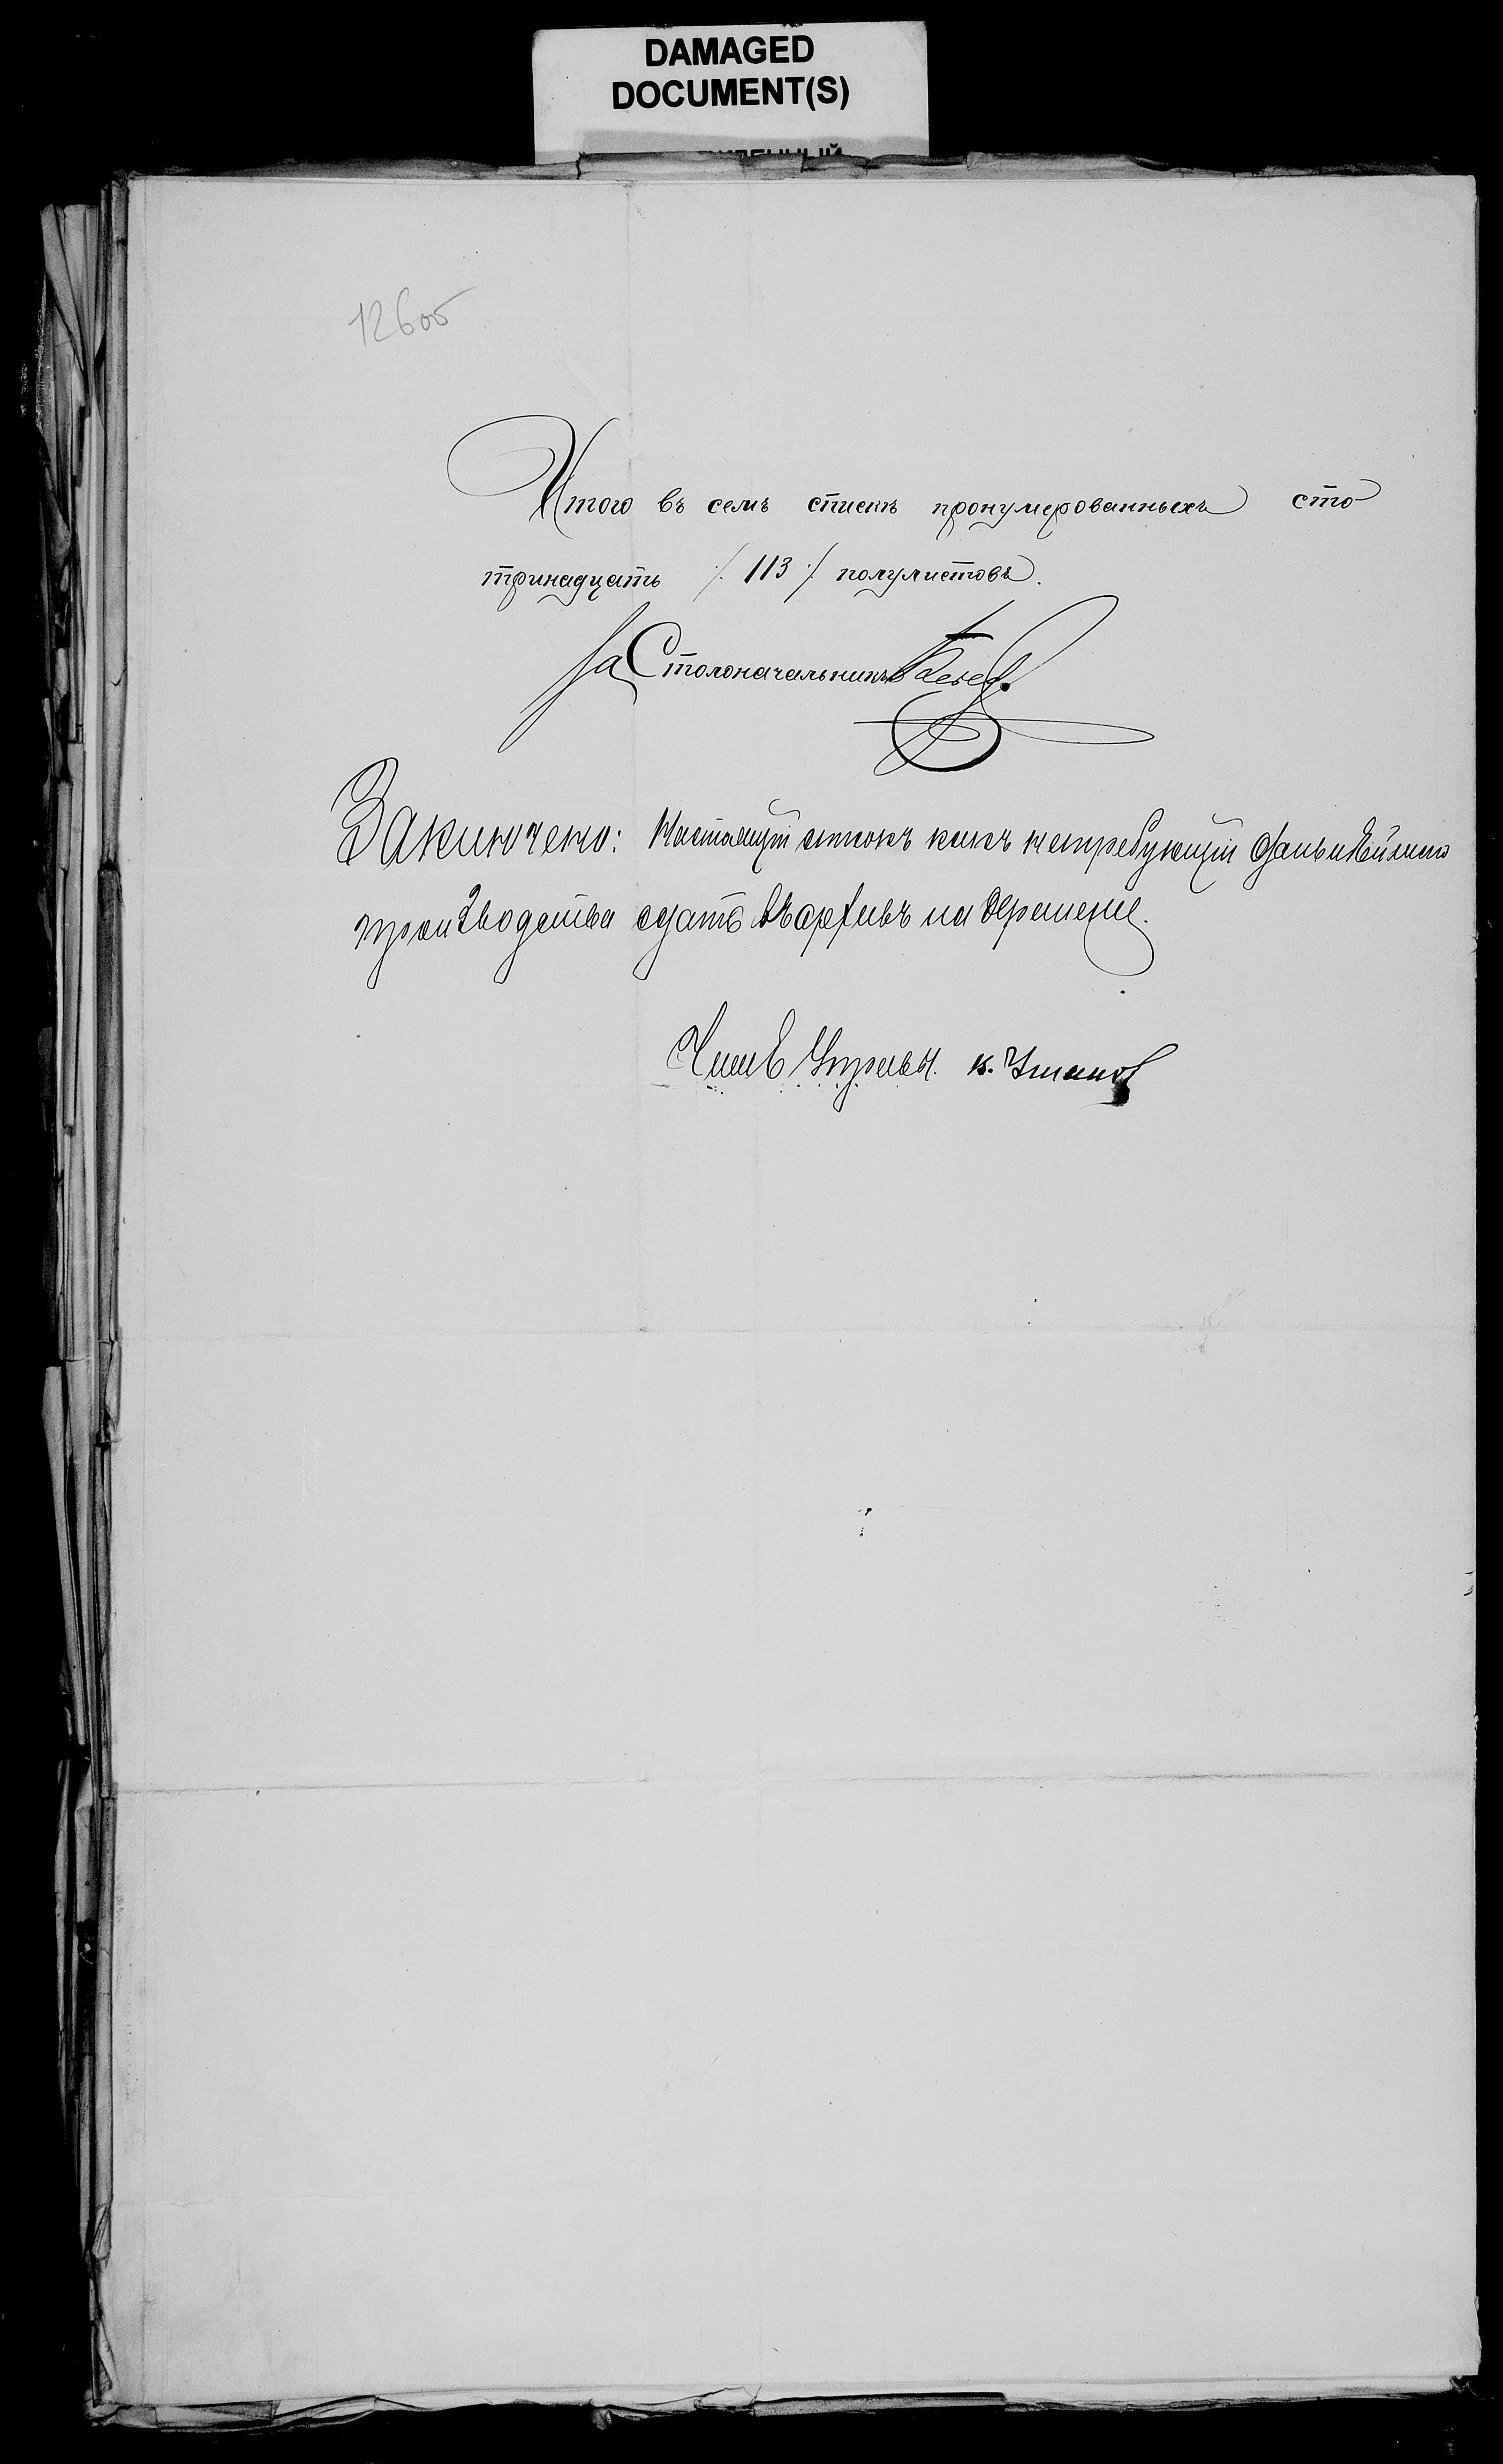 DAMAGED
DOCUMENT(S)
126об
Итого въ семъ спискѣ пронумерованныхъ сто
тринадцать /. 113 ./ полулистовъ.
За Столоначальника
Заключено: Настоящій списокъ какъ нетребующій дальнѣйшаго
производства сдать въ архивъ на храненіе.
Членъ Управы. К.